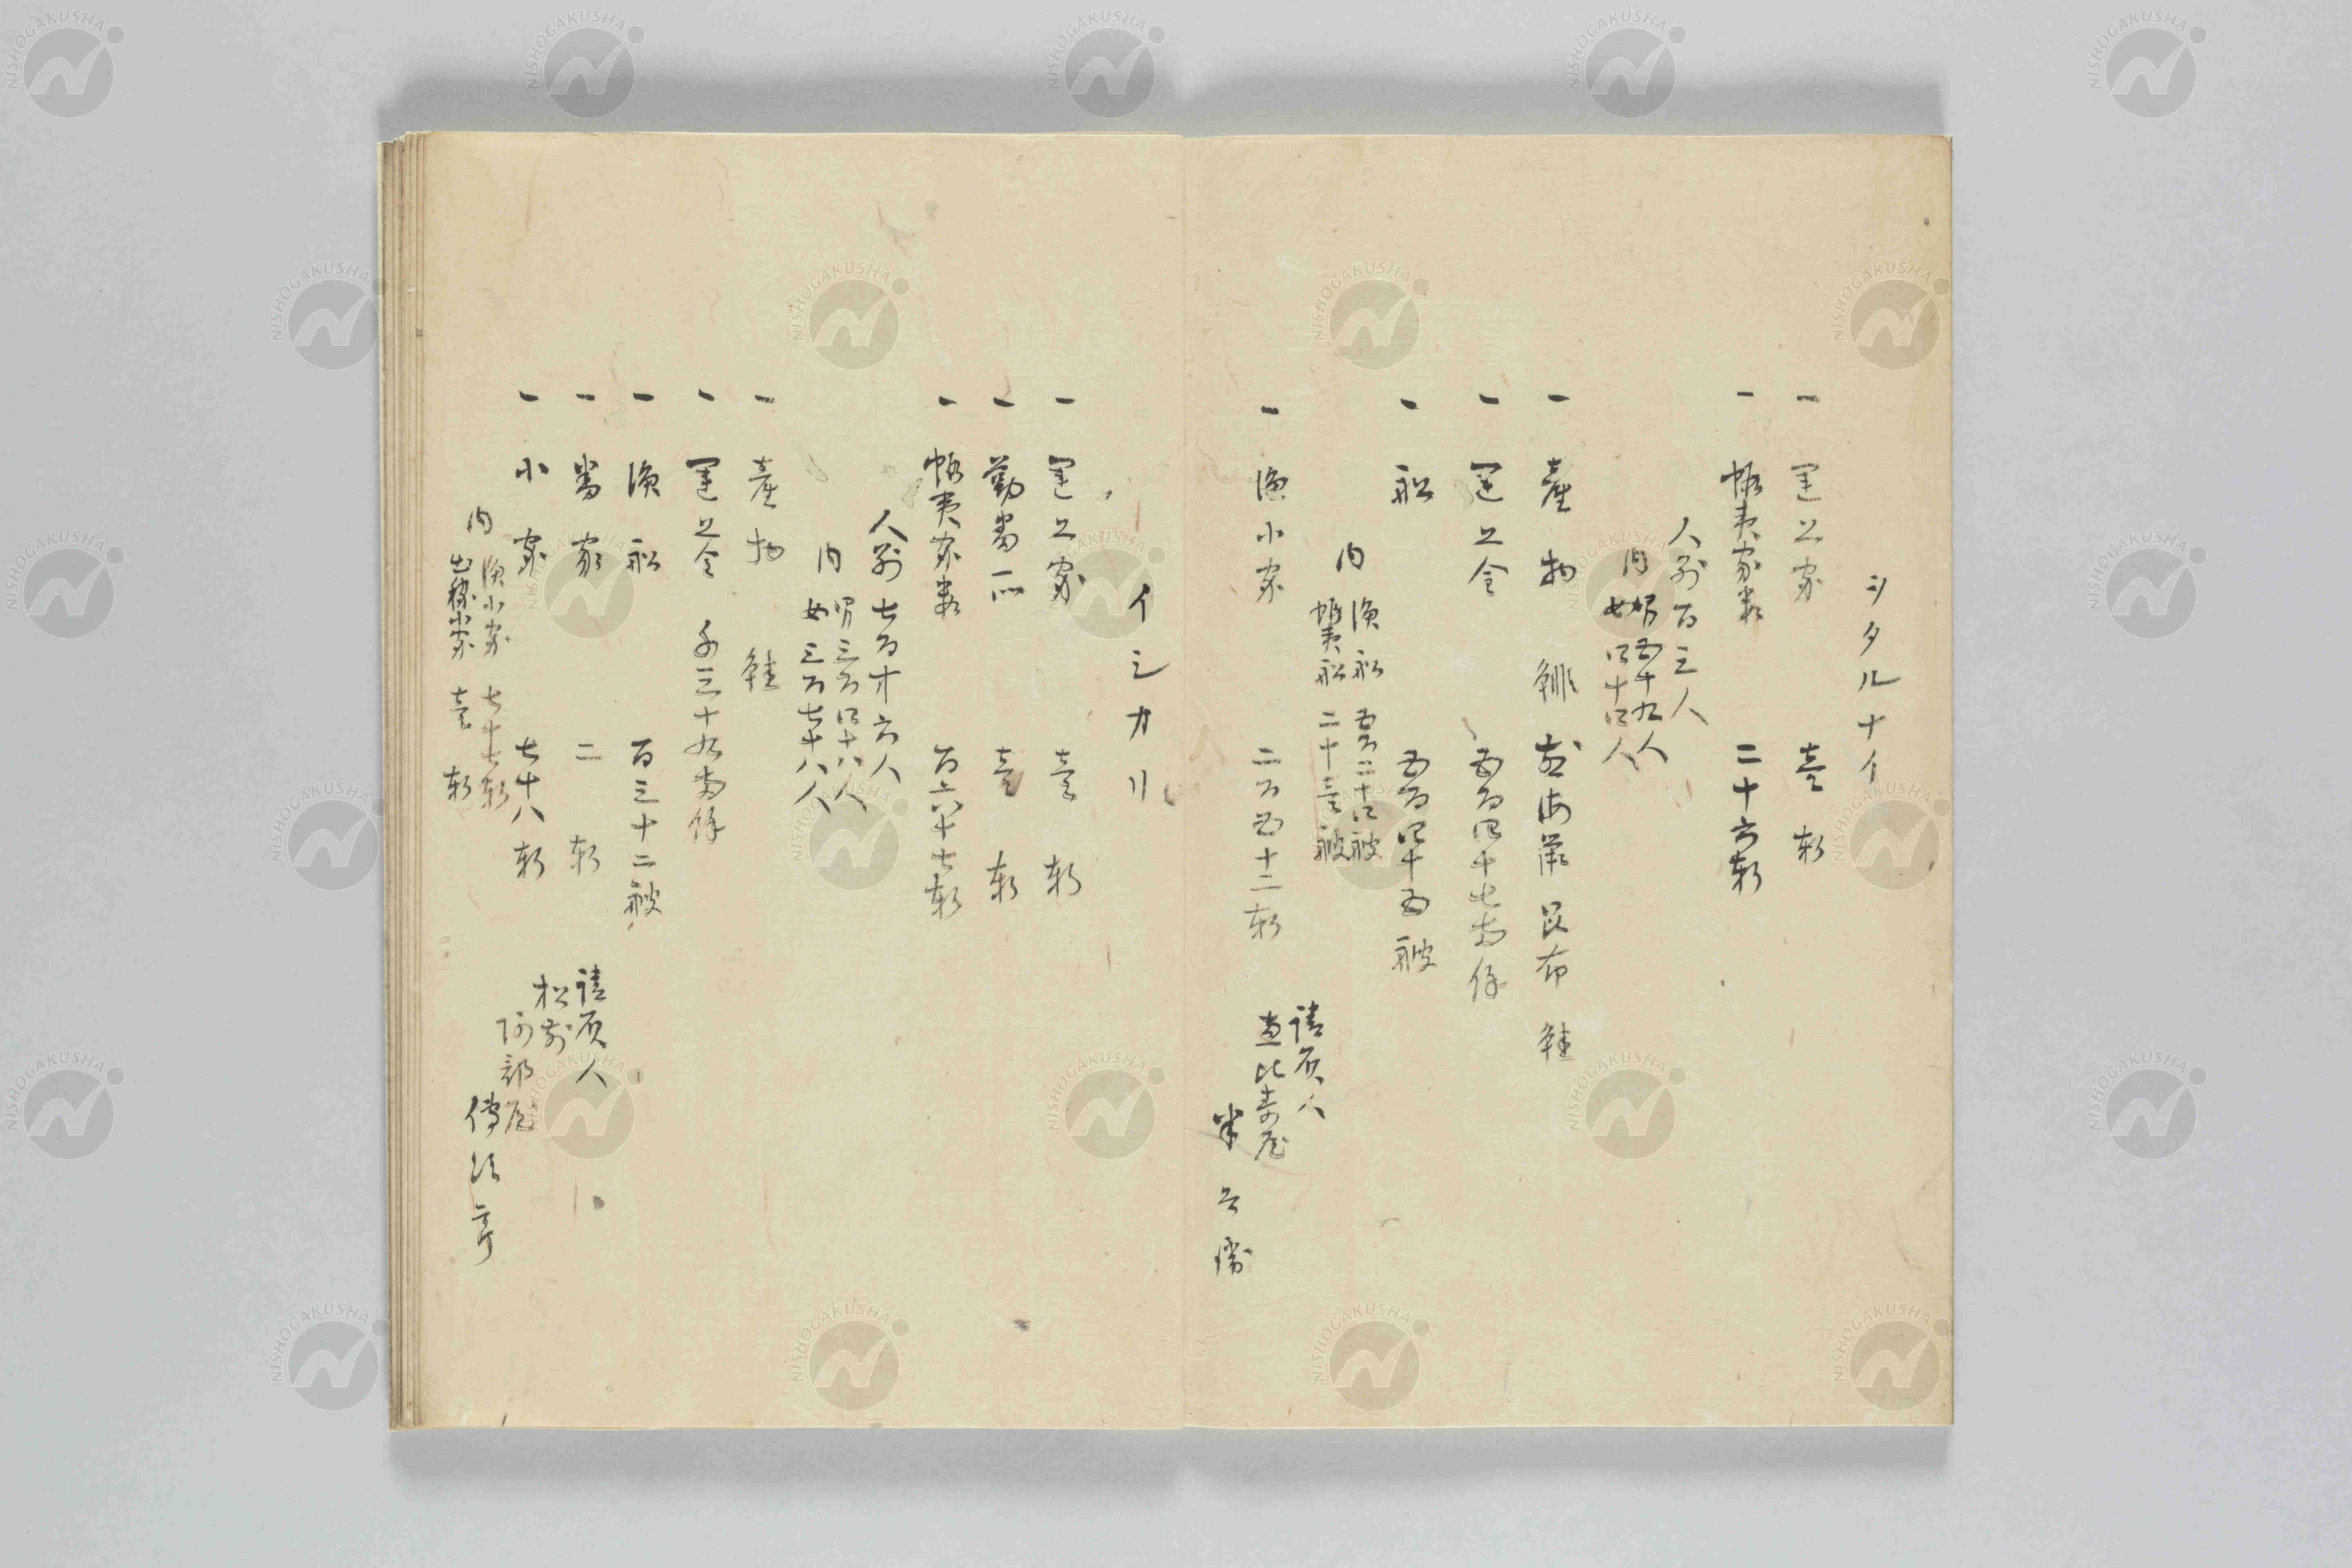 ヲタルナイ
一 運上家 壹軒
一 蝦夷家数 二十六軒
人別百三人
内 男五十九人
女四十四人
一 産物 鯡 煎海鼠 昆布 鮭
一 運上金 五百四十七両餘
一 船 五百四十五艘
内 漁船 五百二十四艘
蝦夷船 二十壹艘
一 漁小家 二百五十二軒
請負人
恵比寿屋
半兵衛
イシカリ
一 運上家 壹軒
一 勤番所 壹軒
一 蝦夷家数 百六十七軒
人別七百廿六人
内 男三百四十八人
女三百七十八人
一 産物 鮭
一 運上金 千三十九両餘
一 漁船 百三十二艘
一 番家 二軒
一 小家 七十八軒
内 漁小家 七十七軒
出稼小家 壹軒
請負人
松前
阿部屋
傳次郎
NISHOGAKUSHA